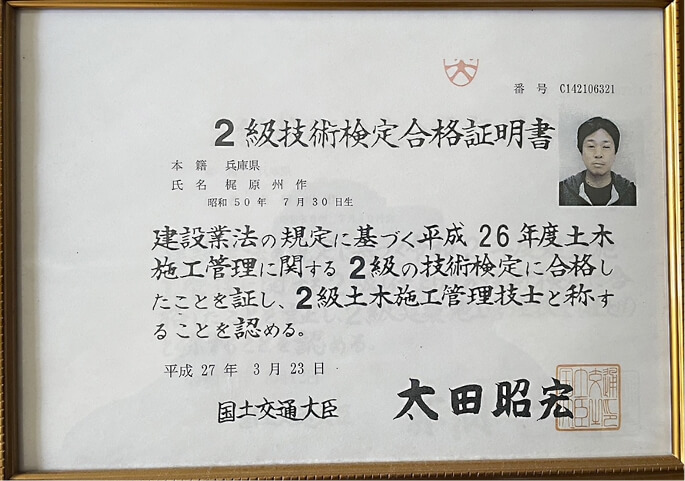 番号 C142106321
2級技術検定合格証明書
本籍 兵庫県
氏名 梶原州作
昭和50年 7月30日生
建設業法の規定に基づく平成26年度土木
施工管理に関する2級の技術検定に合格し
たことを証し、2級土木施工管理技士と称す
ることを認める。
平成27年 3月23日
国土交通大臣 太田昭宏